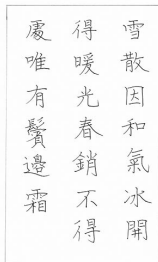 雪散因和氣冰開
得暖光春銷不得
處唯有鬢邊霜